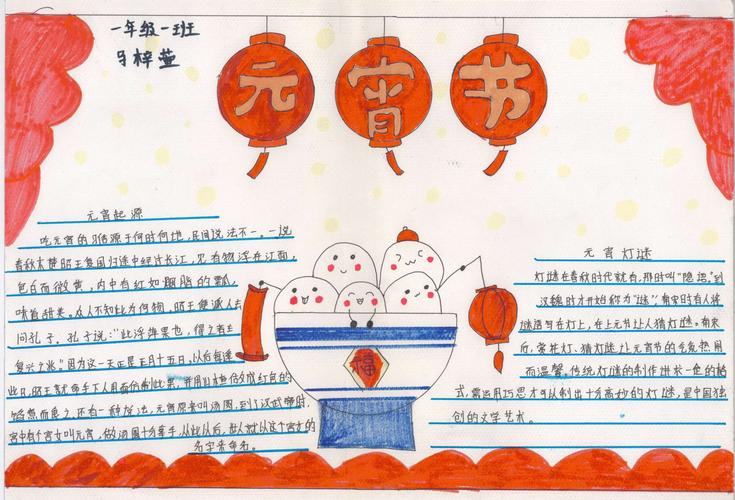 一年级一班
马梓萱
元宵节
元宵起源
吃元宵的习俗源于何时何地,民间说法不一。一说
春秋末楚昭王复国归途中经过长江,见有物浮在江面,
色白而微黄,内中有红如胭脂的瓤,
味道甜美。众人不知此为何物,昭王便派人去
问孔子。孔子说:"此浮萍果也,得之者主
复兴之兆。"因为这一天正是正月十五日,以后每逢
此日,昭王就命手下人用面仿制此果,并用山楂做成红色的
馅煮而食之。还有一种说法,元宵原来叫汤圆,到了汉武帝时,
宫中有个宫女叫元宵,做汤圆十分拿手,从此以后,世人就以这个宫女的
名字来命名。
福
元宵灯谜
灯谜在春秋时代就有,那时叫"隐语"。到
汉魏时才开始称为"谜"。南宋时有人将
谜语写在灯上,在上元节让人猜灯谜。有来
历,赏花灯、猜灯谜让元宵节的气氛热闹
而温馨。传统灯谜的制作讲求一定的格
式,需运用巧思才可以制出十分高妙的灯谜,是中国独
创的文学艺术。